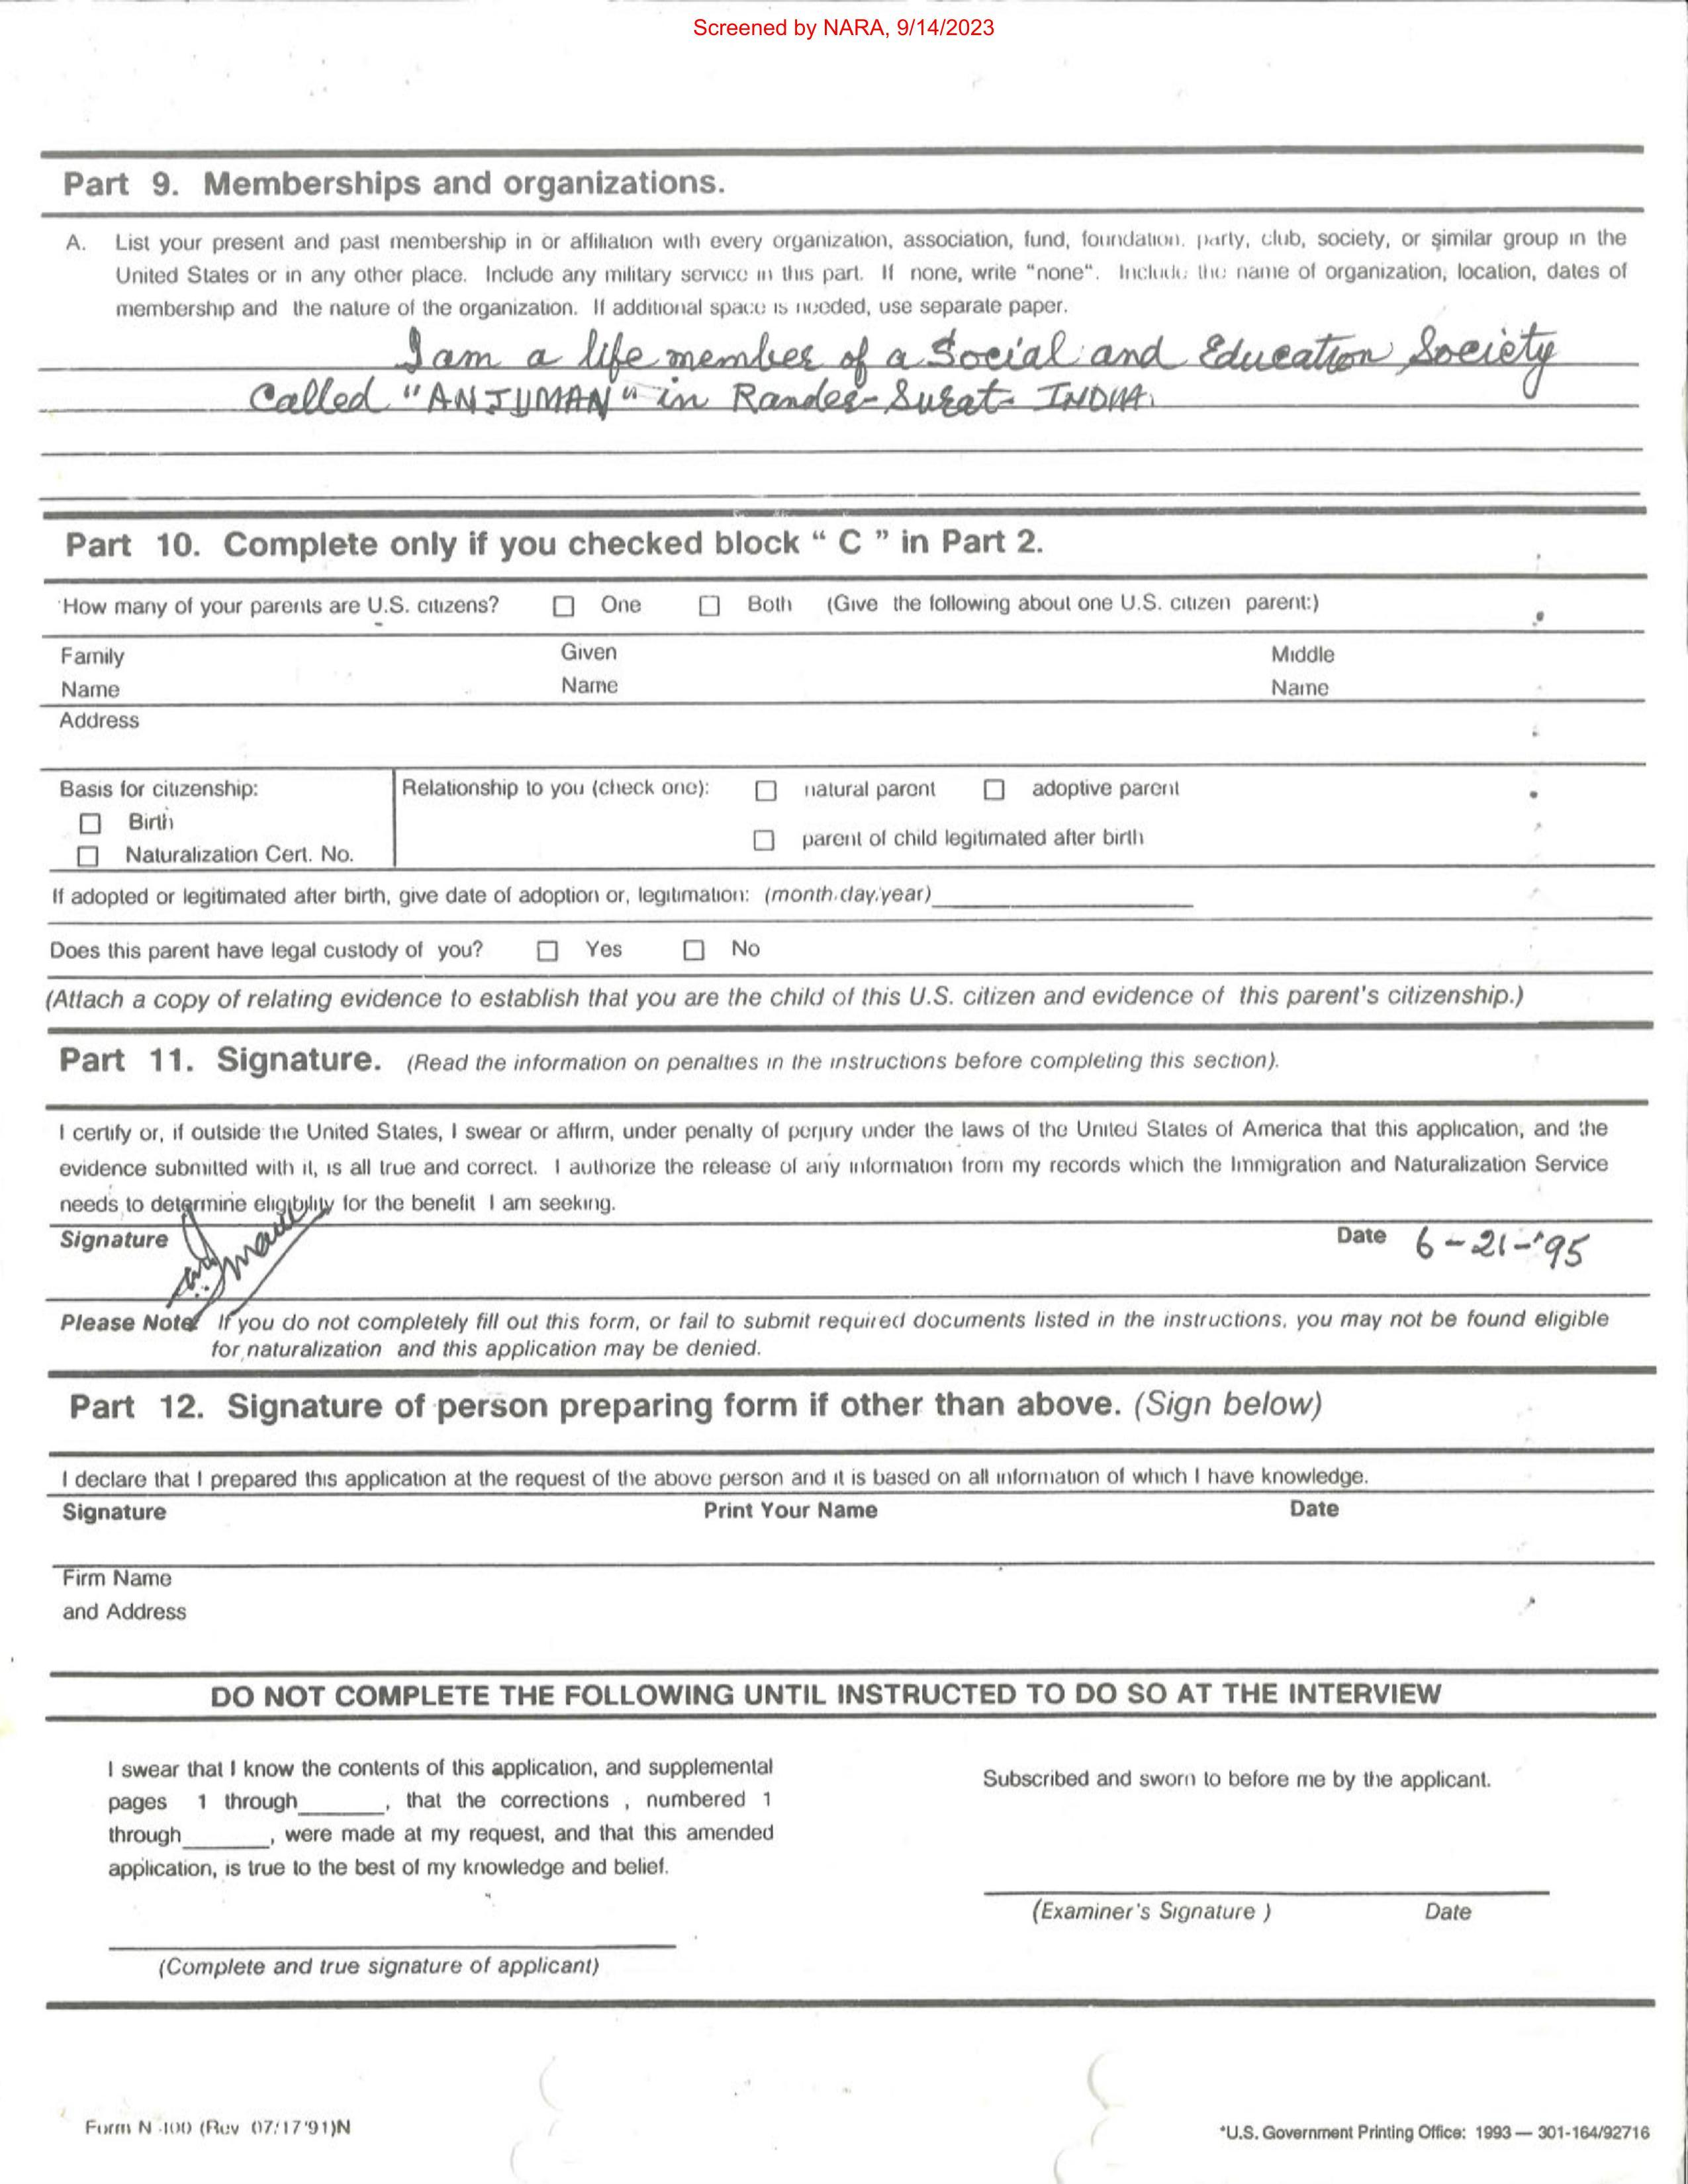 Screened by NARA, 9/14/2023
Part 9. Memberships and organizations.
A. List your present and past membership in or affiliation with every organization, association, fund, foundation, party, club, society, or similar group in the
United States or in any other place. Include any military service in this part. If none, write "none". Include the name of organization, location, dates of
membership and the nature of the organization. If additional space is needed, use separate paper.
I am a life member of a Social and Education Society
Called "ANJUMAN" in Rander-Surat- INDIA.
Part 10. Complete only if you checked block " C " in Part 2.
How many of your parents are U.S. citizens? ☐ One ☐ Both (Give the following about one U.S. citizen parent:)
Family Given Middle
Name Name Name
Address
Basis for citizenship: Relationship to you (check one): ☐ natural parent ☐ adoptive parent
☐ Birth
☐ parent of child legitimated after birth
☐ Naturalization Cert. No.
If adopted or legitimated after birth, give date of adoption or, legitimation: (month,day,year)
Does this parent have legal custody of you? ☐ Yes ☐ No
(Attach a copy of relating evidence to establish that you are the child of this U.S. citizen and evidence of this parent's citizenship.)
Part 11. Signature. (Read the information on penalties in the instructions before completing this section).
I certify or, if outside the United States, I swear or affirm, under penalty of perjury under the laws of the United States of America that this application, and the
evidence submitted with it, is all true and correct. I authorize the release of any information from my records which the Immigration and Naturalization Service
needs to determine eligibility for the benefit I am seeking.
Signature Date 6-21-'95
Please Note: If you do not completely fill out this form, or fail to submit required documents listed in the instructions, you may not be found eligible
for naturalization and this application may be denied.
Part 12. Signature of person preparing form if other than above. (Sign below)
I declare that I prepared this application at the request of the above person and it is based on all information of which I have knowledge.
Signature Print Your Name Date
Firm Name
and Address
DO NOT COMPLETE THE FOLLOWING UNTIL INSTRUCTED TO DO SO AT THE INTERVIEW
I swear that I know the contents of this application, and supplemental
pages 1 through______, that the corrections , numbered 1
through______, were made at my request, and that this amended
application, is true to the best of my knowledge and belief.
(Complete and true signature of applicant)
Subscribed and sworn to before me by the applicant.
(Examiner's Signature ) Date
Form N-400 (Rev 07/17/91)N
*U.S. Government Printing Office: 1993 — 301-164/92716